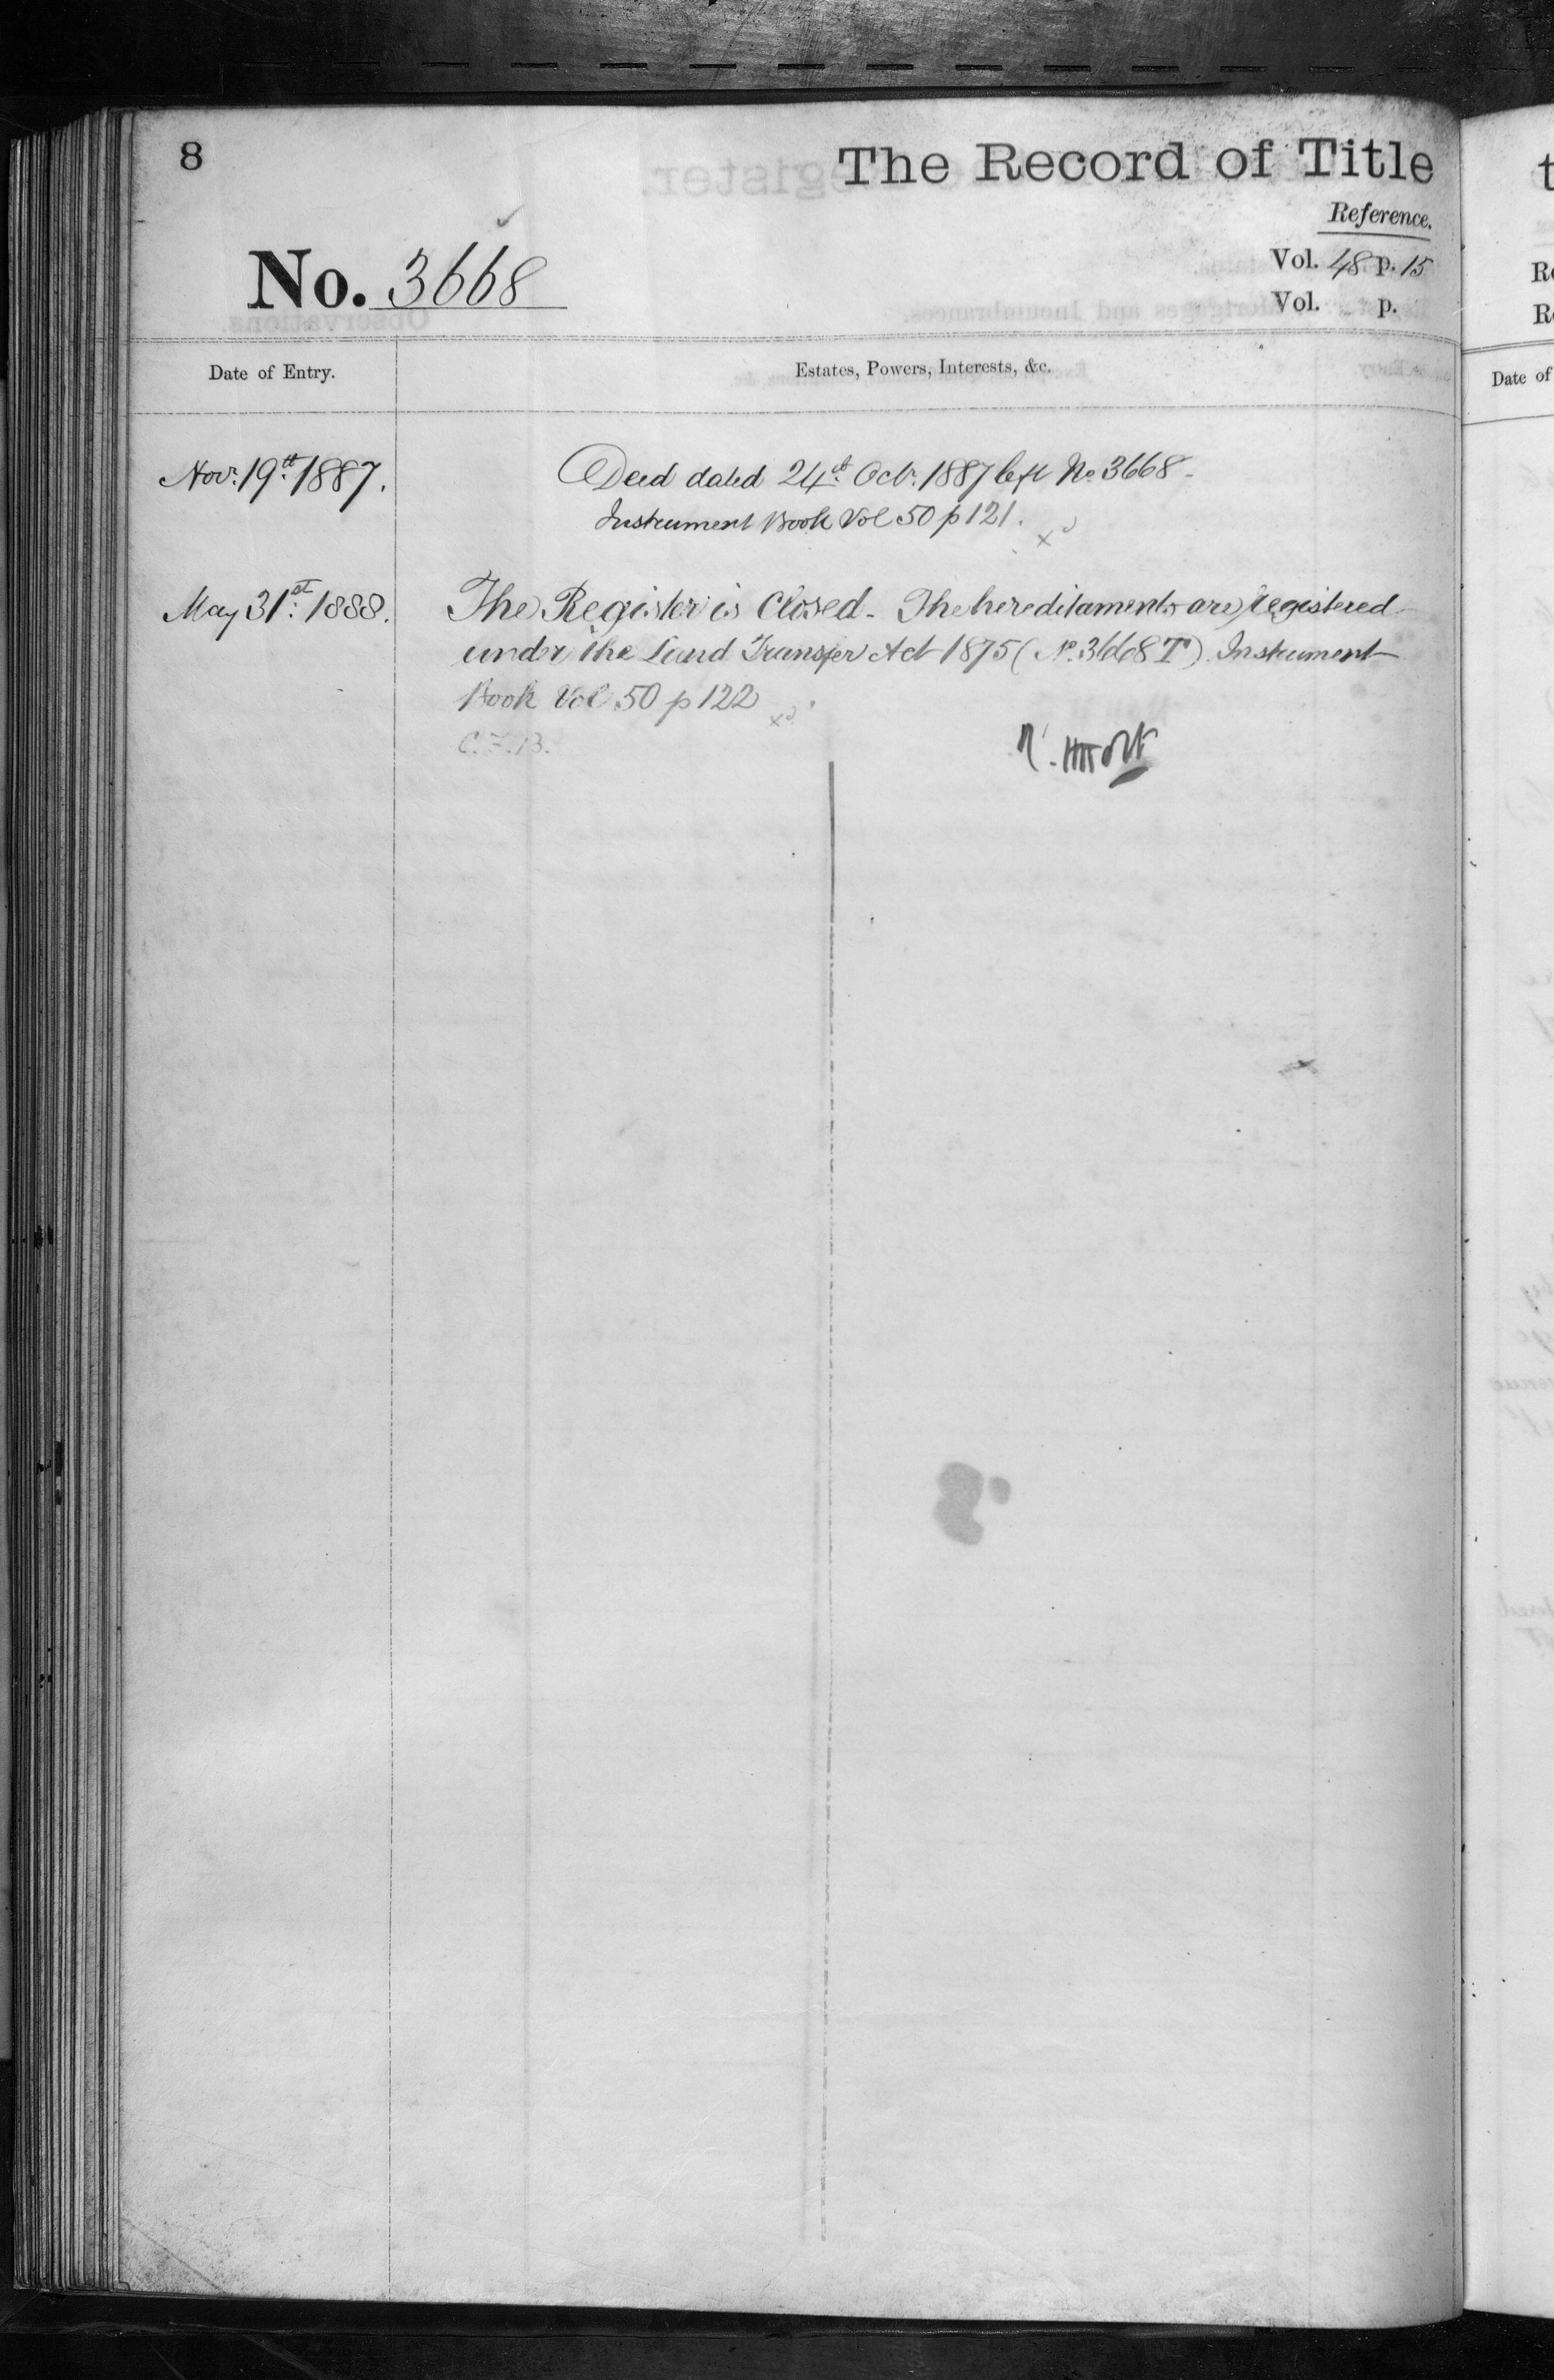 8
The Record of Title
Reference.
No. 3668
Vol. 48 p. 15
Vol. p.
Date of Entry.
Estates, Powers, Interests, &c.
Novr. 19th 1887.
Deed dated 24th Octr. 1887 left No 3668-
Instrument Book Vol 50 p 121.
May 31st: 1888.
The Register is Closed - The hereditaments are registered
under the Land Transfer Act 1875 (No. 3668 T) Instrument
Book Vol. 50 p 122
C.F.B.
Date of